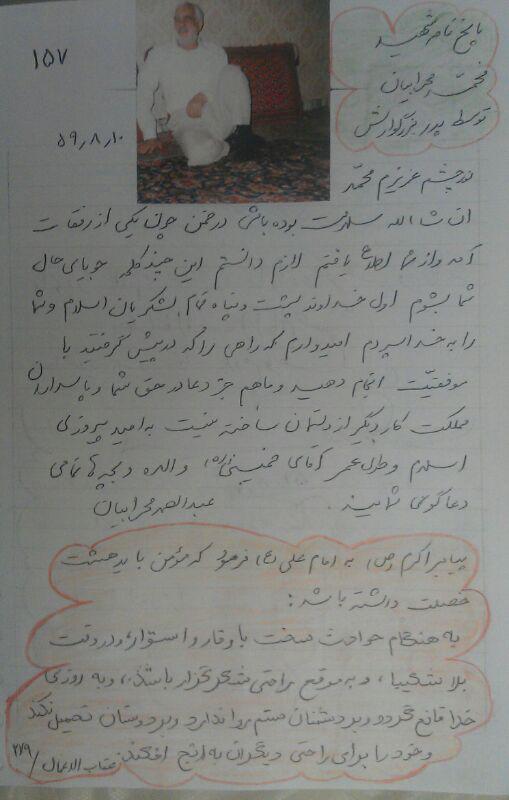 پاسخ نامه شهید
محمد محرابیان
توسط پدر بزرگوارش
۱۵۷
۵۹٫۸٫۱۰
نورچشم عزیزم محمد
ان شاالله سلامت بوده باشی در ضمن چون یکی از رفقات
آمد و از شما اطلاع یافتم لازم دانستم این چند کلمه جویای حال
شما بشوم اول خداوند پشت و پناه تمام لشکریان اسلام و شما
را به خدا سپردم امیدوارم که راهی را که در پیش گرفتید با
موفقیت انجام دهید و ما هم جز دعا در حق شما و پاسداران
مملکت کار دیگر از دستمان ساخته نیست به امید پیروزی
اسلام و طول عمر آقای خمینی (ره) والده و بچه ها تمامی
دعاگوی شمایند.
عبدالله محرابیان
پیامبر اکرم (ص) به امام علی (ع) فرمود که مؤمن باید هشت
خصلت داشته باشد:
به هنگام حوادث سخت با وقار و استوار، و در وقت
بلا شکیبا، و به موقع راحتی شکرگزار باشد، و به روزی
خدا قانع گردد و بر دشمنان ستم روا ندارد و بر دوستان تحمیل نکند
و خود را برای راحتی دیگران به رنج افکند
عقاب الاعمال / ۲۷۹